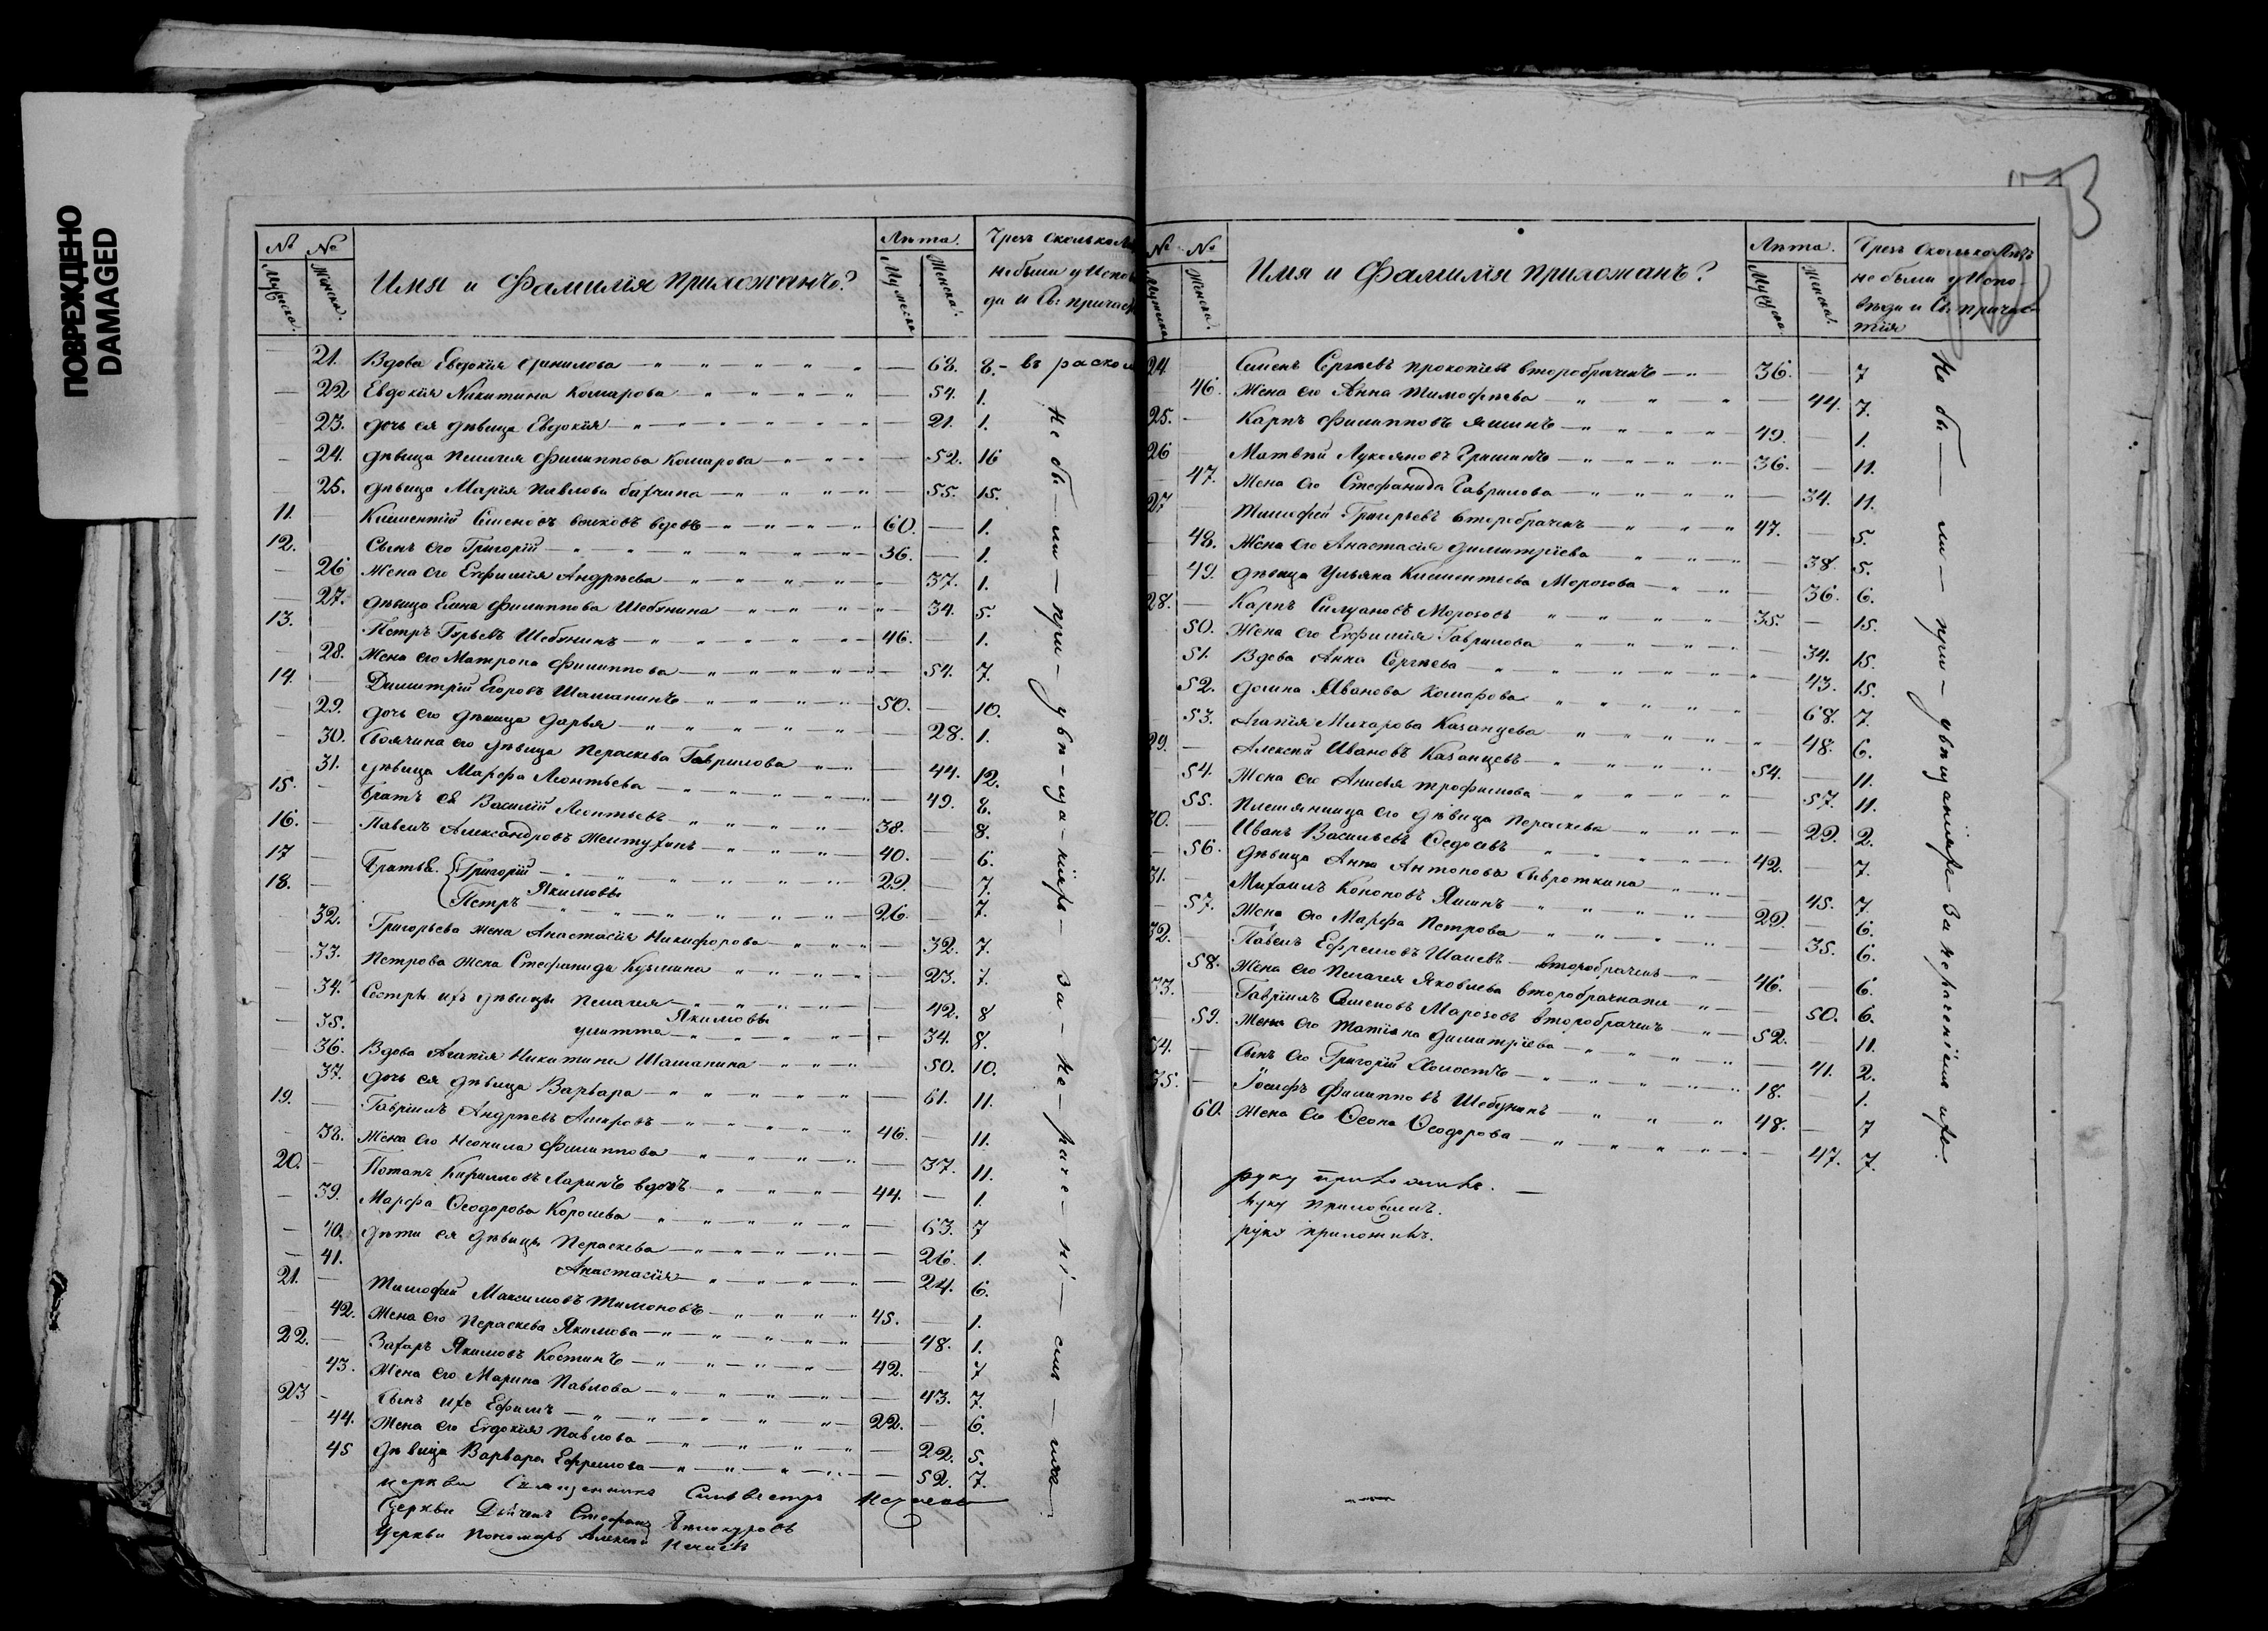 ПОВРЕЖДЕНО
DAMAGED
№ № Имя и Фамилія прихожанъ? Лѣта. Чрезъ сколько
Мужеска. Женска. Мужеска. Женска. не были у Испов
да и Св. причас
21. Вдова Евдокія Данилова 68. 8. - въ раскол
22 Евдокія Никитина Комарова 54. 1.
23. дочь ея дѣвица Евдокія 21. 1.
24. дѣвица Пелагея Филиппова Комарова 52. 16
25. дѣвица Марія Павлова 55. 15.
11. Климентій Семеновъ вдовъ 60. 1.
12. Сынъ его Григорій 36. 1.
26 Жена его Евфимія Андрѣева 37. 1.
27. дѣвица Елена Филиппова Шебунина 34. 5.
13. Петръ Гурьевъ Шебунинъ 46. 1.
28. Жена его Матрона Филиппова 54. 7.
14. Димитрій Егоровъ Шаманинъ 50. 10.
29. дочь его дѣвица Дарья 28. 1.
30. Своячина его дѣвица Пераскева Гаврилова 44. 12.
31. дѣвица Марфа Леонтьева 49. 8.
15. братъ ея Василій Леонтьевъ 38. 8.
16. Павелъ Александровъ Желтухинъ 40. 6.
17 Братья Григорій 29. 7.
Якимовы
18. Петръ 26. 7.
32. Григорьева жена Анастасія Никифорова 32. 7.
33. Петрова жена Стефанида Кузмина 23. 7.
34. Сестры ихъ дѣвицы Пелагея 42. 8
Якимовы
35. улитта 34. 8.
36. Вдова Агапія Никитина Шаманина 50. 10.
37. дочь ея дѣвица Варвара 61. 11.
19. Гавріилъ Андрѣевъ 46. 11.
38. Жена его Неонила Филиппова 37. 11.
20. Потапъ Кириловъ Ларинъ вдовъ 44. 1.
39. Марфа Ѳеодорова Королева 63. 7
40. дѣти ея дѣвицы Пераскева 26. 1.
41. Анастасія 24. 6.
21. Тимофей Максимовъ Тимоновъ 45. 1.
42. Жена его Пераскева Якимова 48. 1.
22. Захаръ Якимовъ Костинъ 42. 7
43. Жена его Марина Павлова 43. 7.
23 Сынъ ихъ Ефимъ 22. 6.
44. Жена его Евдокія Павлова 22. 5.
45 дѣвица Варвара Ефремова 52. 7.
церкви Священникъ Сильвестръ
Церкви Дьячекъ Стефанъ
Церкви Пономарь Алексей
Не бы - ли - при - увѣ - ща - ніяхъ - за - не - раче - ні - емъ - ихъ
№ № Имя и Фамилія прихожанъ? Лѣта. Чрезъ сколько лѣтъ
Мужеска Женска. Мужеска Женска. не были у Испо-
вѣди и Св. причас-
тія
24 Семенъ Сергѣевъ Прокопіевъ второбраченъ 36. 7
46. Жена его Анна Тимофеева 44. 7.
25. Карпъ Филипповъ Яшинъ 49. 1.
26 Матвѣй Лукояновъ Гришинъ 36. 11.
47. Жена его Стефанида Гаврилова 34. 11.
27 Тимофей Григорьевъ второбраченъ 47. 5.
48. Жена его Анастасія Димитріева 38. 5.
49. дѣвица Ульяна Климентьева Морозова 36. 6.
28. Карпъ Силуановъ Морозовъ 35. 15.
50. Жена его Евфимія Гаврилова 34. 15.
51. Вдова Анна Сергѣева 43. 15.
52. домна Иванова Комарова 68. 7.
53. Агапія Макарова Казанцева 48. 6.
29. Алексей Ивановъ Казанцевъ 54. 11.
54. Жена его Анисья Трофимова 57. 11.
55. Племянница его дѣвица Пераскева 29. 2.
30. Иванъ Васильевъ Ѳедосѣевъ 42. 7.
56. дѣвица Анна Антонова Сивроткина 45. 7.
31. Михаилъ Кононовъ Яшинъ 29. 6.
57. Жена его Марфа Петрова 35. 6.
32. Павелъ Ефремовъ второбраченъ 46. 6.
58. Жена его Пелагея Яковлева второбрачная 50. 6.
33. Гавріилъ Семеновъ Морозовъ второбраченъ 52. 11.
59. Жена его Татіана Димитріева 41. 2.
34. Сынъ его Григорій Холостъ 18. 1.
35. Іосифъ Филипповъ Шебунинъ 48. 7
60. Жена его Ѳеона Ѳеодорова 47. 7.
руку приложилъ.
руку приложилъ.
руку приложилъ.
Не бы - ли - при - увѣщаніяхъ за нераченіемъ ихъ